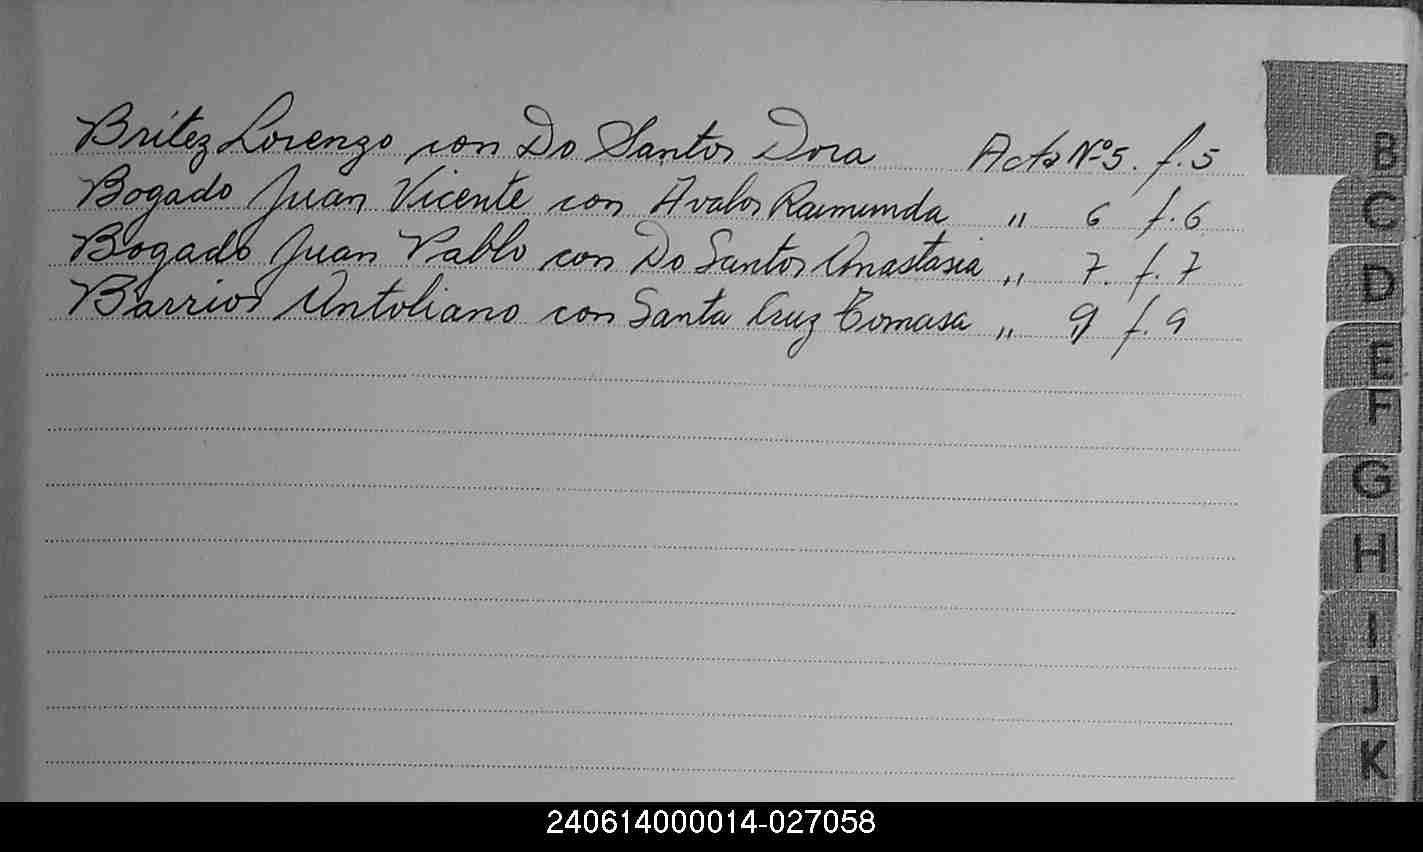 Britez Lorenzo con Do Santos Dora Acta Nº 5. f. 5
Bogado Juan Vicente con Avalos Raimunda " 6 f. 6
Bogado Juan Pablo con Do Santos Anastasia " 7. f. 7
Barrios Antoliano con Santa Cruz Tomasa " 9 f. 9
B
C
D
E
F
G
H
I
J
K
240614000014-027058